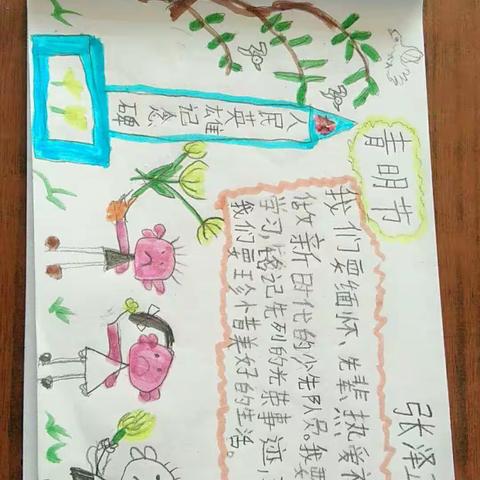 张泽
青明节
人民英雄记念碑
我们要缅怀、先辈,热爱
做新时代的少先队员。我要
学习,铭记先列的光荣事迹,
我们要珍惜美好的生活。